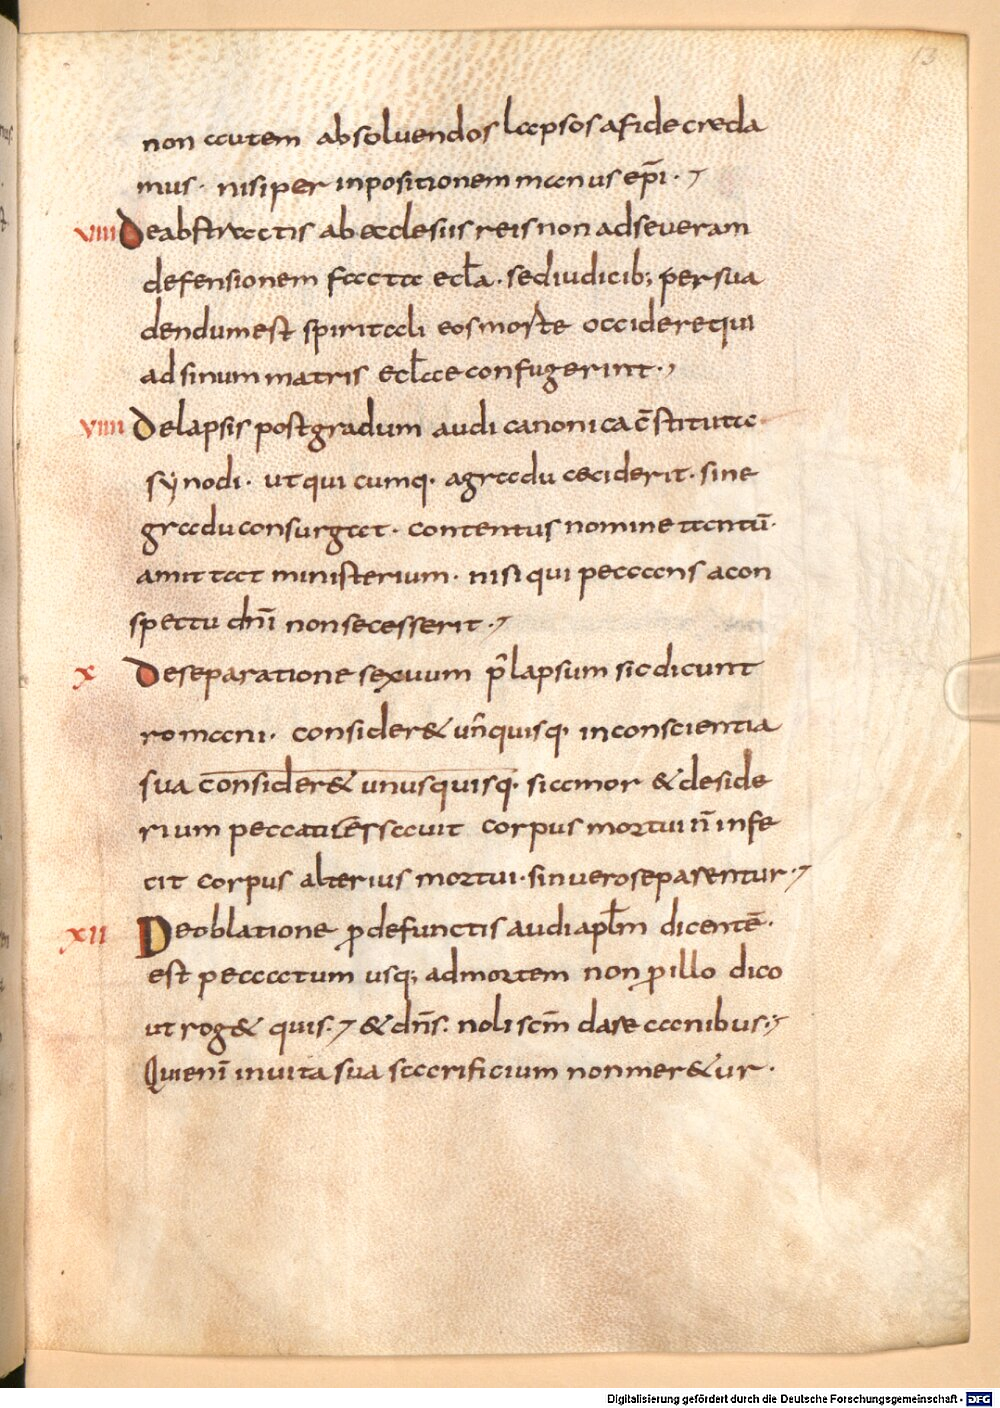 13
non autem absoluendos lapsos a fide creda
mus· nisi per inpositionem manus ep̄i·
VIII De abstractis ab ecclesiis reis non adseveram
defensionem facta ecl̄a· sed iudicib; persua
dendum est spiritali eos morte occidere qui
ad sinum matris ecl̄ae confugerint·
VIIII De lapsis post gradum audi canonica c̄stituta
synodi· ut qui cumq· a gradu ceciderit· sine
gradu consurgat· contentus nomine tantū·
amittat ministerium· nisi qui peccans a con
spectu dn̄i non secesserit·
X De separatione sexuum p̄ lapsum sic dicunt
romani· consider& un̄quisq· in conscientia
sua consider& unusquisq· si amor & deside
rium peccati cessauit corpus mortui n̄ infe
cit corpus alterius mortui· sin vero separentur·
XII De oblatione ꝓ defunctis audi apl̄m dicentē·
est peccatum usq; ad mortem non ꝓ illo dico
ut rog& quis· & dn̄s· noli scm̄ dare canibus·
Qui enī in uita sua sacrificium non mer&ur·
Digitalisierung gefördert durch die Deutsche Forschungsgemeinschaft - DFG